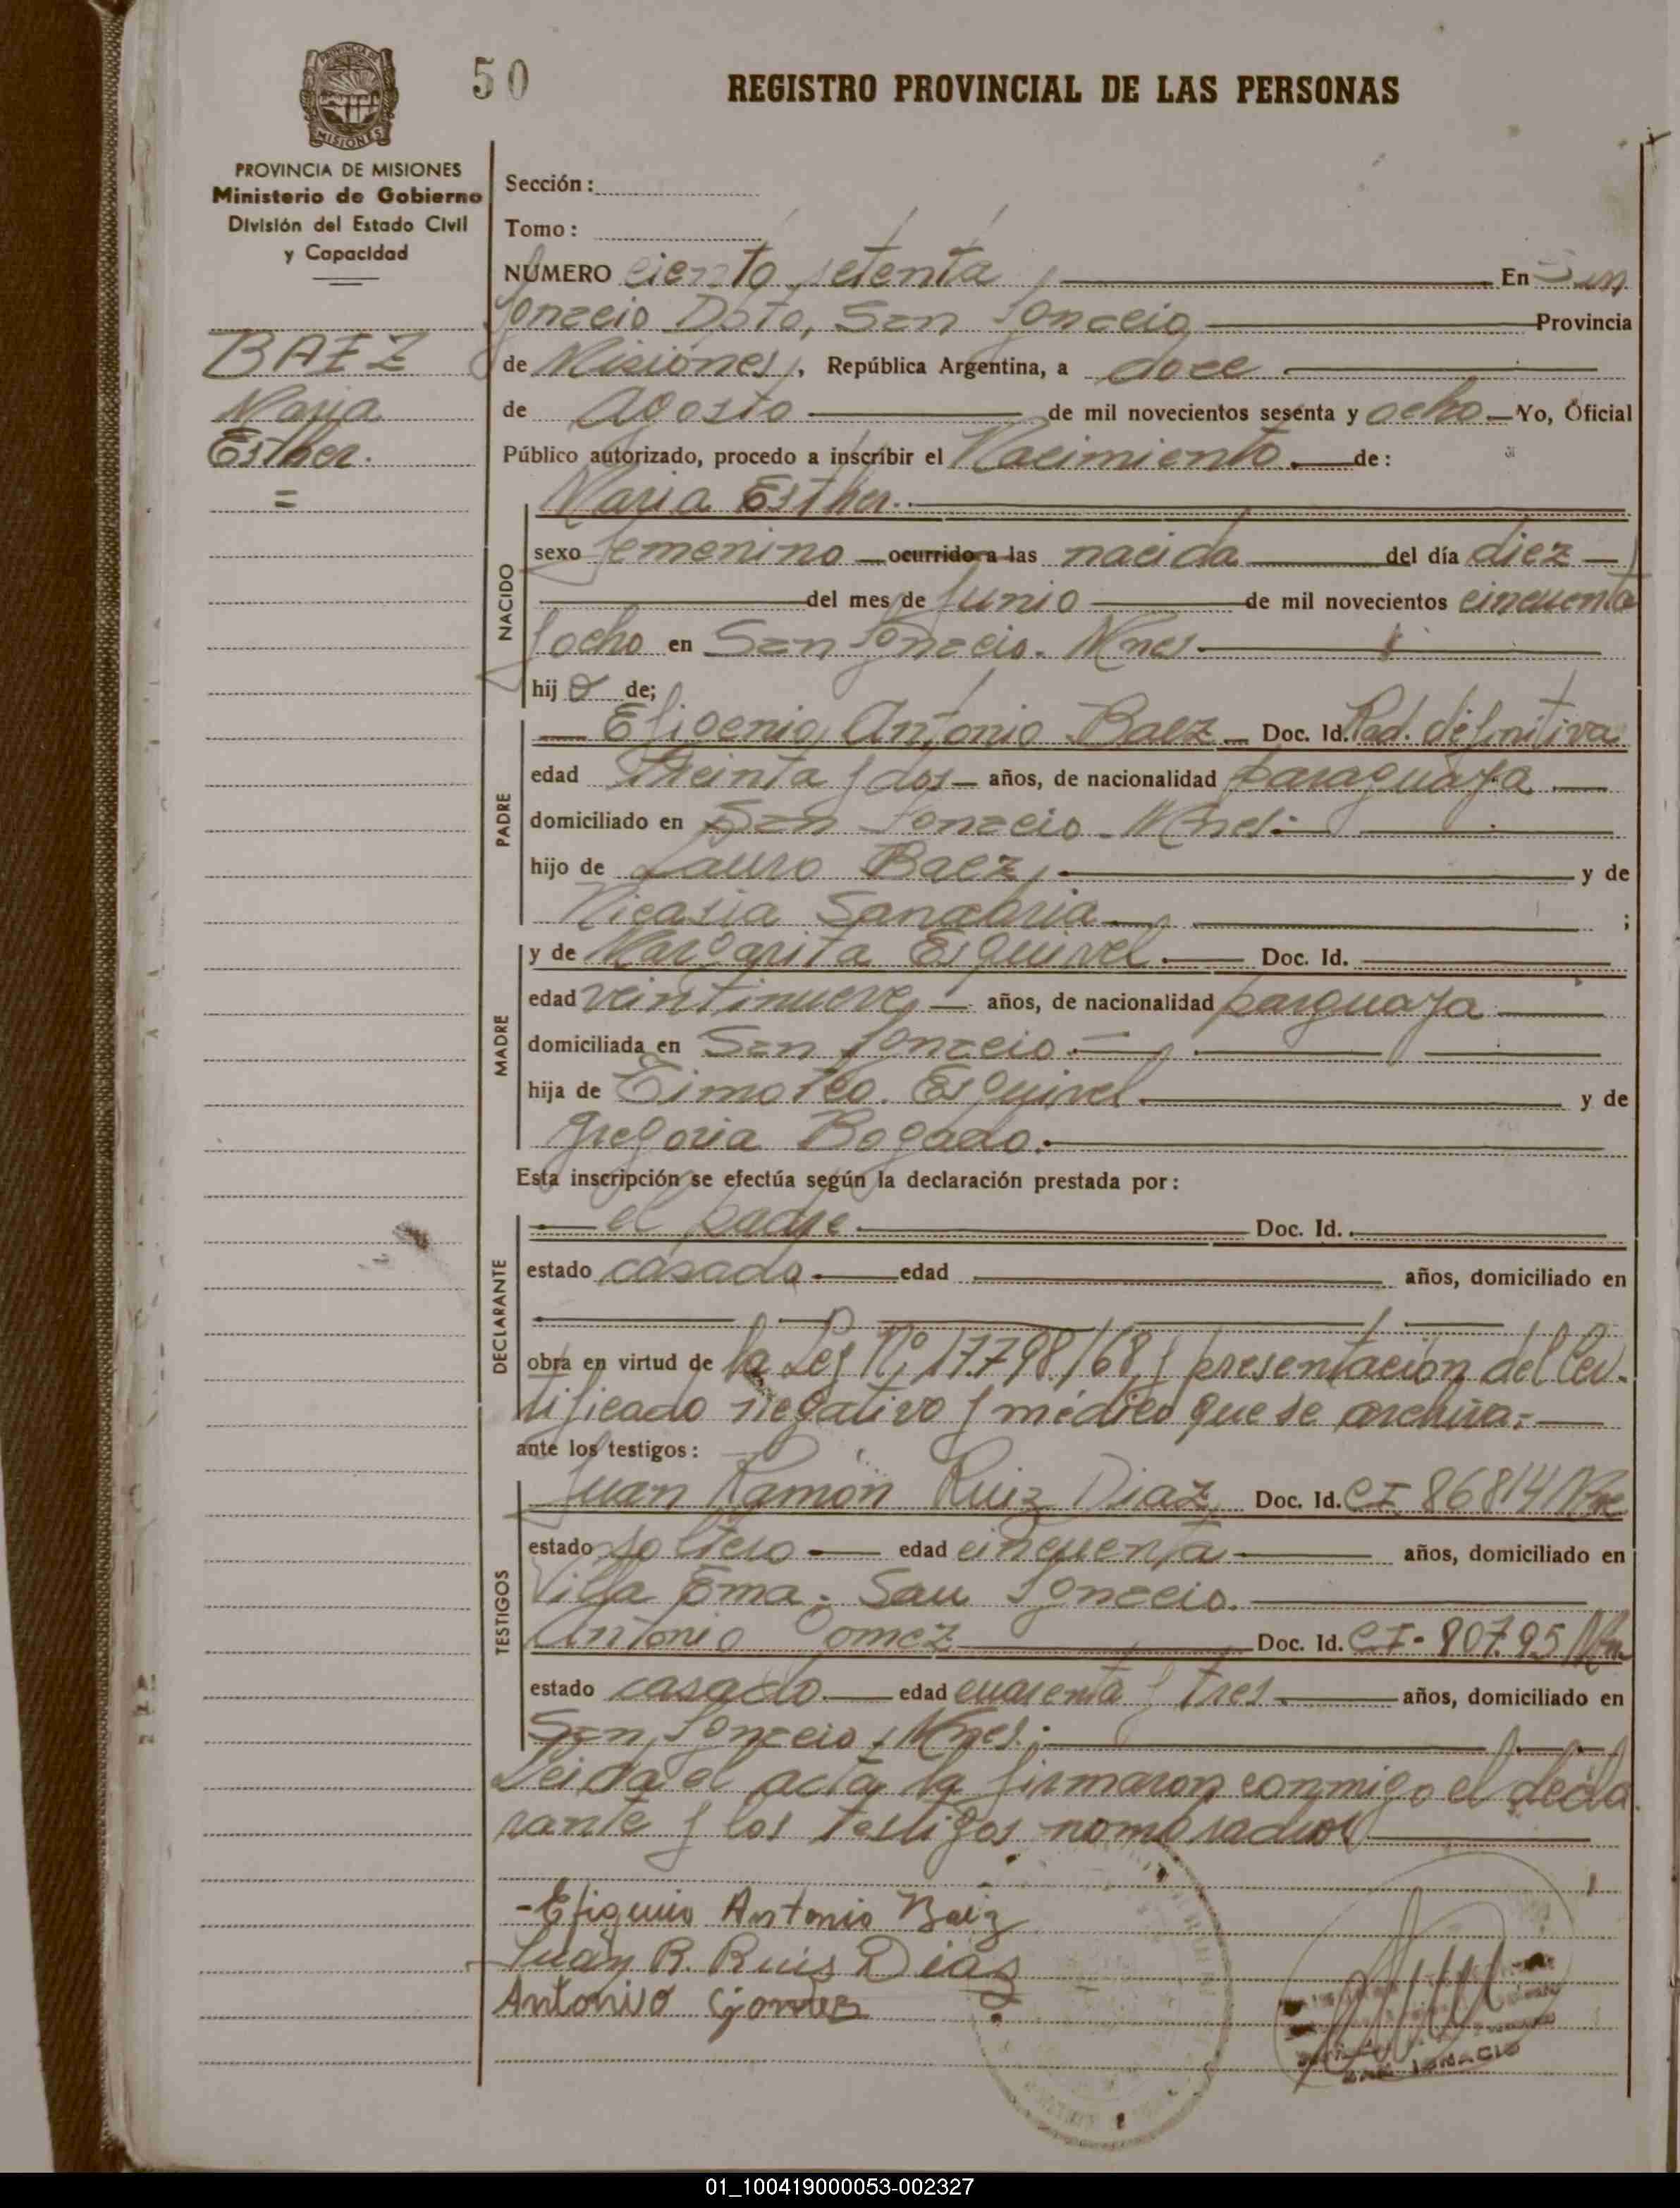 50
REGISTRO PROVINCIAL DE LAS PERSONAS
PROVINCIA DE MISIONES
Ministerio de Gobierno
División del Estado Civil
y Capacidad
BAEZ
Maria
Esther.
=
Sección:
Tomo:
NUMERO ciento setenta En San
Ignacio Dpto, San Ignacio Provincia
de Misiones, República Argentina, a doce
de Agosto de mil novecientos sesenta y ocho Yo, Oficial
Público autorizado, procedo a inscribir el Nacimiento de:
Maria Esther.
NACIDO
sexo femenino ocurrido a las nacida del día diez
del mes de Junio de mil novecientos cincuenta
y ocho en San Ignacio. Mnes.
hij a de;
PADRE
Efigenio Antonio Baez Doc. Id. Rad. definitiva
edad treinta y dos años, de nacionalidad paraguaya
domiciliado en San Ignacio - Mnes.
hijo de Lauro Baez, y de
Nicasia Sanabria ;
MADRE
y de Margarita Esquivel Doc. Id.
edad veintinueve, años, de nacionalidad parguaya
domiciliada en San Ignacio.
hija de Timoteo. Esquivel y de
Gregoria Bogado.
Esta inscripción se efectúa según la declaración prestada por:
DECLARANTE
el padre Doc. Id.
estado casado edad años, domiciliado en
obra en virtud de la Ley Nº 17.798/68 y presentación del Cer-
tificado negativo y médico que se archiva.
ante los testigos:
TESTIGOS
Juan Ramón Ruiz Diaz, Doc. Id. CI 86814 Mne
estado soltero edad cincuenta años, domiciliado en
Villa Ema. San Ignacio.
Antonio Gomez Doc. Id. CI-80795 Mn
estado casado edad cuarenta y tres años, domiciliado en
San Ignacio, Mnes.
Leida el acta, la firmaron conmigo el decla
rante y los testigos nombrados
-Efigenio Antonio Baez
Juan R. Ruis Dias
Antonio Gomez
SAN IGNACIO
01_100419000053-002327